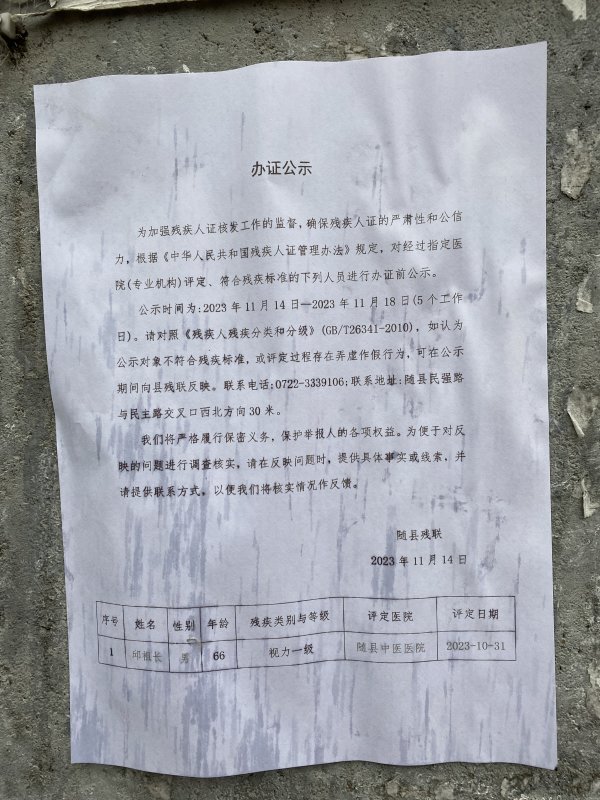 办证公示
为加强残疾人证核发工作的监督,确保残疾人证的严肃性和公信
力,根据《中华人民共和国残疾人证管理办法》规定,对经过指定医
院(专业机构)评定、符合残疾标准的下列人员进行办证前公示。
公示时间为:2023年11月14日—2023年11月18日(5个工作
日)。请对照《残疾人残疾分类和分级》(GB/T26341-2010),如认为
公示对象不符合残疾标准,或评定过程存在弄虚作假行为,可在公示
期间向县残联反映。联系电话:0722-3339106;联系地址:随县民强路
与民主路交叉口西北方向30米。
我们将严格履行保密义务,保护举报人的各项权益。为便于对反
映的问题进行调查核实,请在反映问题时,提供具体事实或线索,并
请提供联系方式,以便我们将核实情况作反馈。
随县残联
2023年11月14日
序号 姓名 性别 年龄 残疾类别与等级 评定医院 评定日期
1 邱植长 男 66 视力一级 随县中医医院 2023-10-31